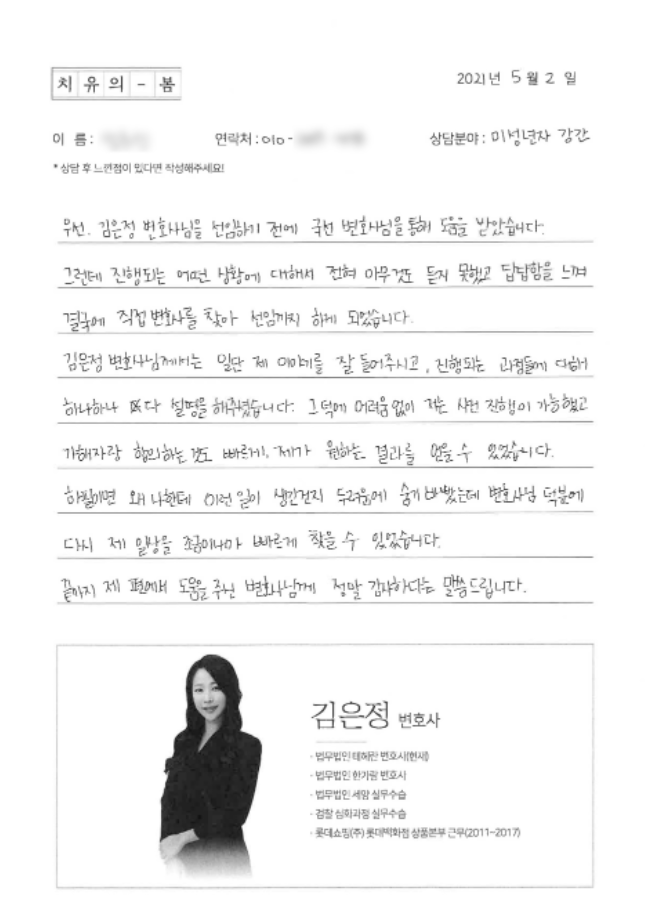 치유의 - 봄
2021년 5월 2일
이 름 :
연락처 : 010 -
상담분야 : 미성년자 강간
* 상담 후 느낀점이 있다면 작성해주세요!
우선. 김은정 변호사님을 선임하기 전에 국선 변호사님을 통해 도움을 받았습니다.
그런데 진행되는 어떤 상황에 대해서 전혀 아무것도 듣지 못했고 답답함을 느껴
결국에 직접 변호사를 찾아 선임까지 하게 되었습니다.
김은정 변호사님께서는 일단 제 이야기를 잘 들어주시고, 진행되는 과정들에 대해
하나하나 다 설명을 해주셨습니다. 그덕에 어려움 없이 저는 사건 진행이 가능했고
가해자랑 합의하는 것도 빠르게, 제가 원하는 결과를 얻을 수 있었습니다.
하필이면 왜 나한테 이런 일이 생긴건지 두려움에 숨기 바빴는데 변호사님 덕분에
다시 제 일상을 조금이나마 빠르게 찾을 수 있었습니다.
끝까지 제 편에서 도움을 주신 변호사님께 정말 감사하다는 말씀 드립니다.
김은정 변호사
· 법무법인 테헤란 변호사(현재)
· 법무법인 한가람 변호사
· 법무법인 세양 실무수습
· 검찰 심화과정 실무수습
· 롯데쇼핑(주) 롯데백화점 상품본부 근무(2011~2017)